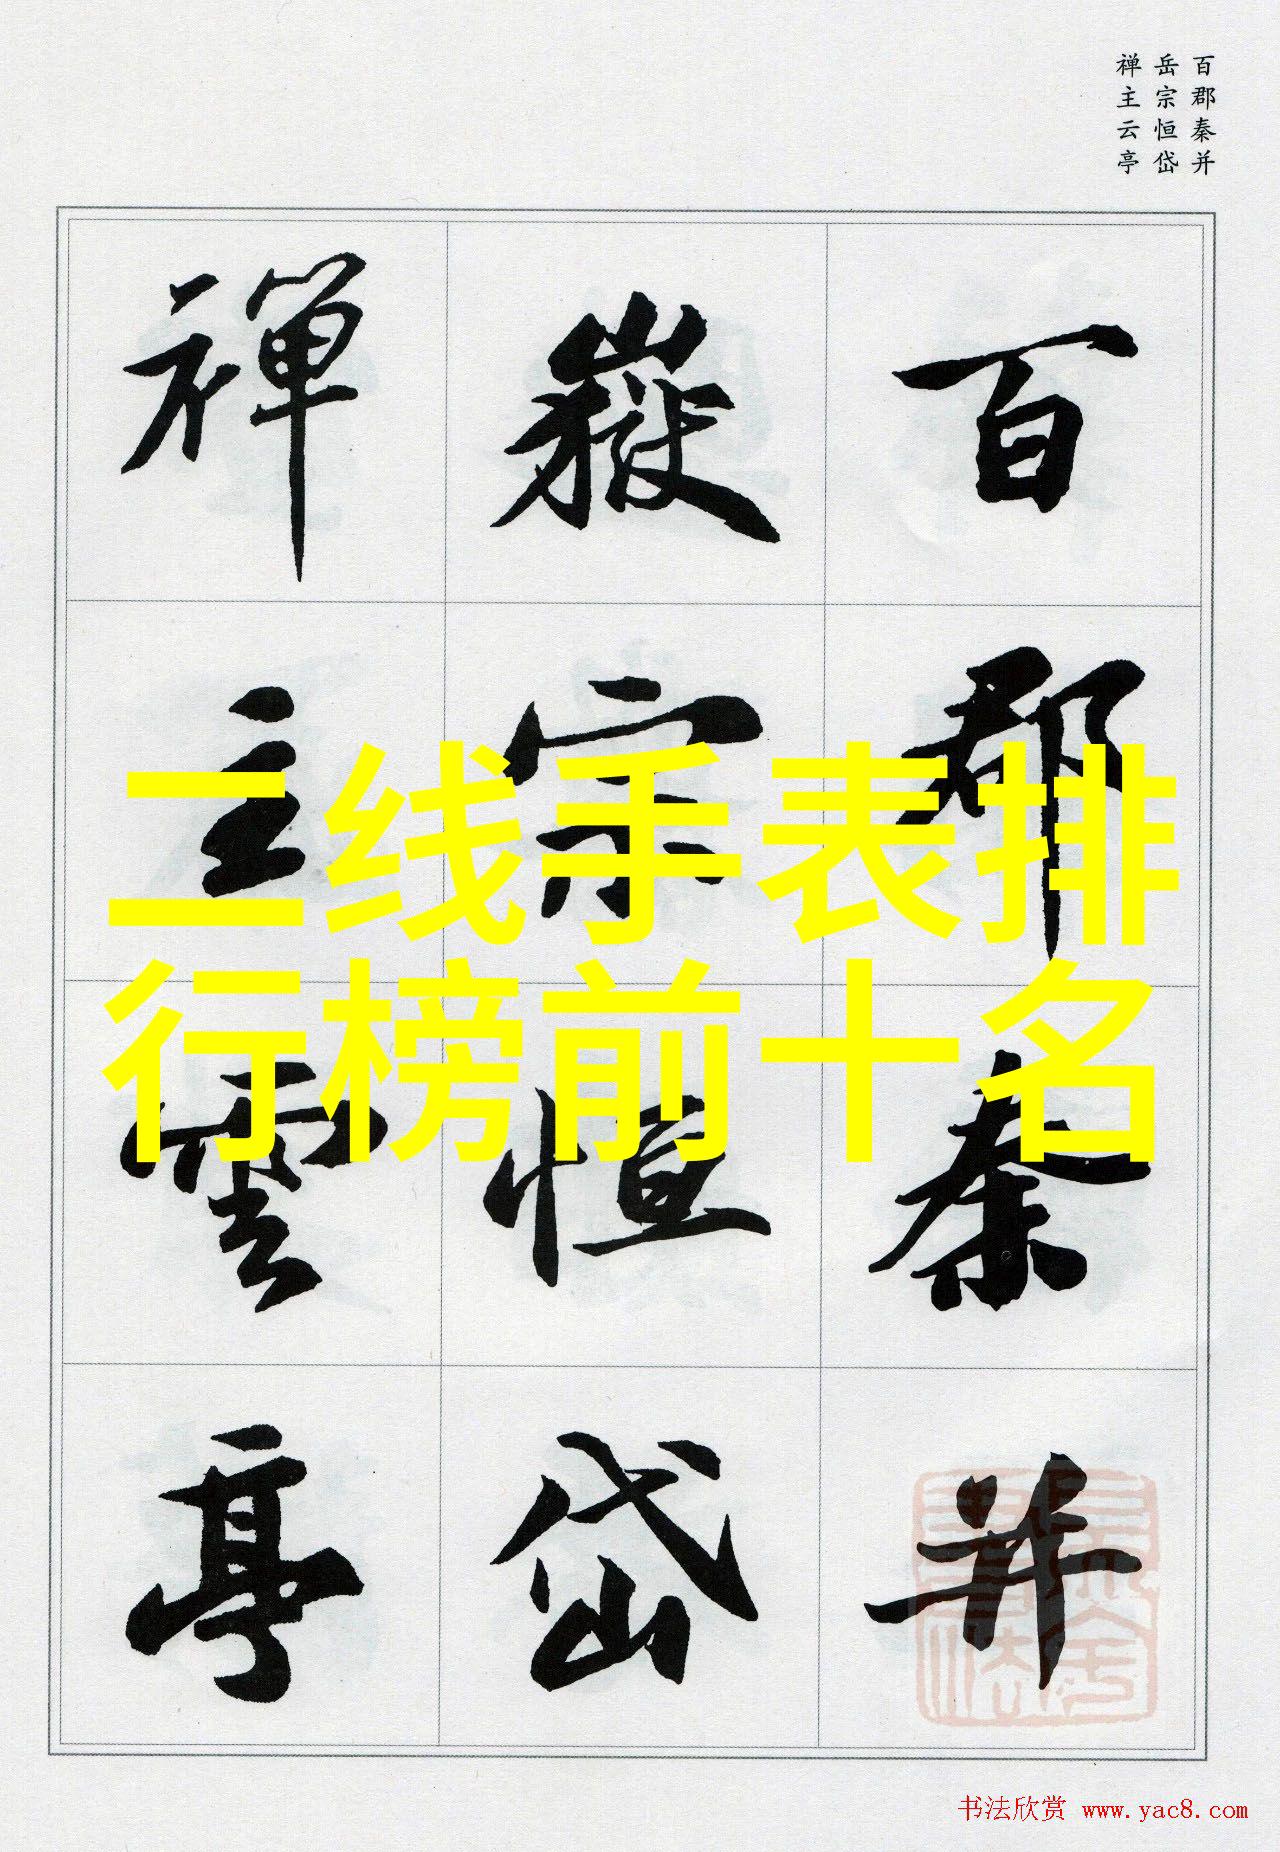 百郡秦并
岳宗恒岱
禅主云亭
百郡秦并
嶽宗恒岱
禅主雲亭
二线手表排
行榜前十名
书法欣赏 www.yac8.com